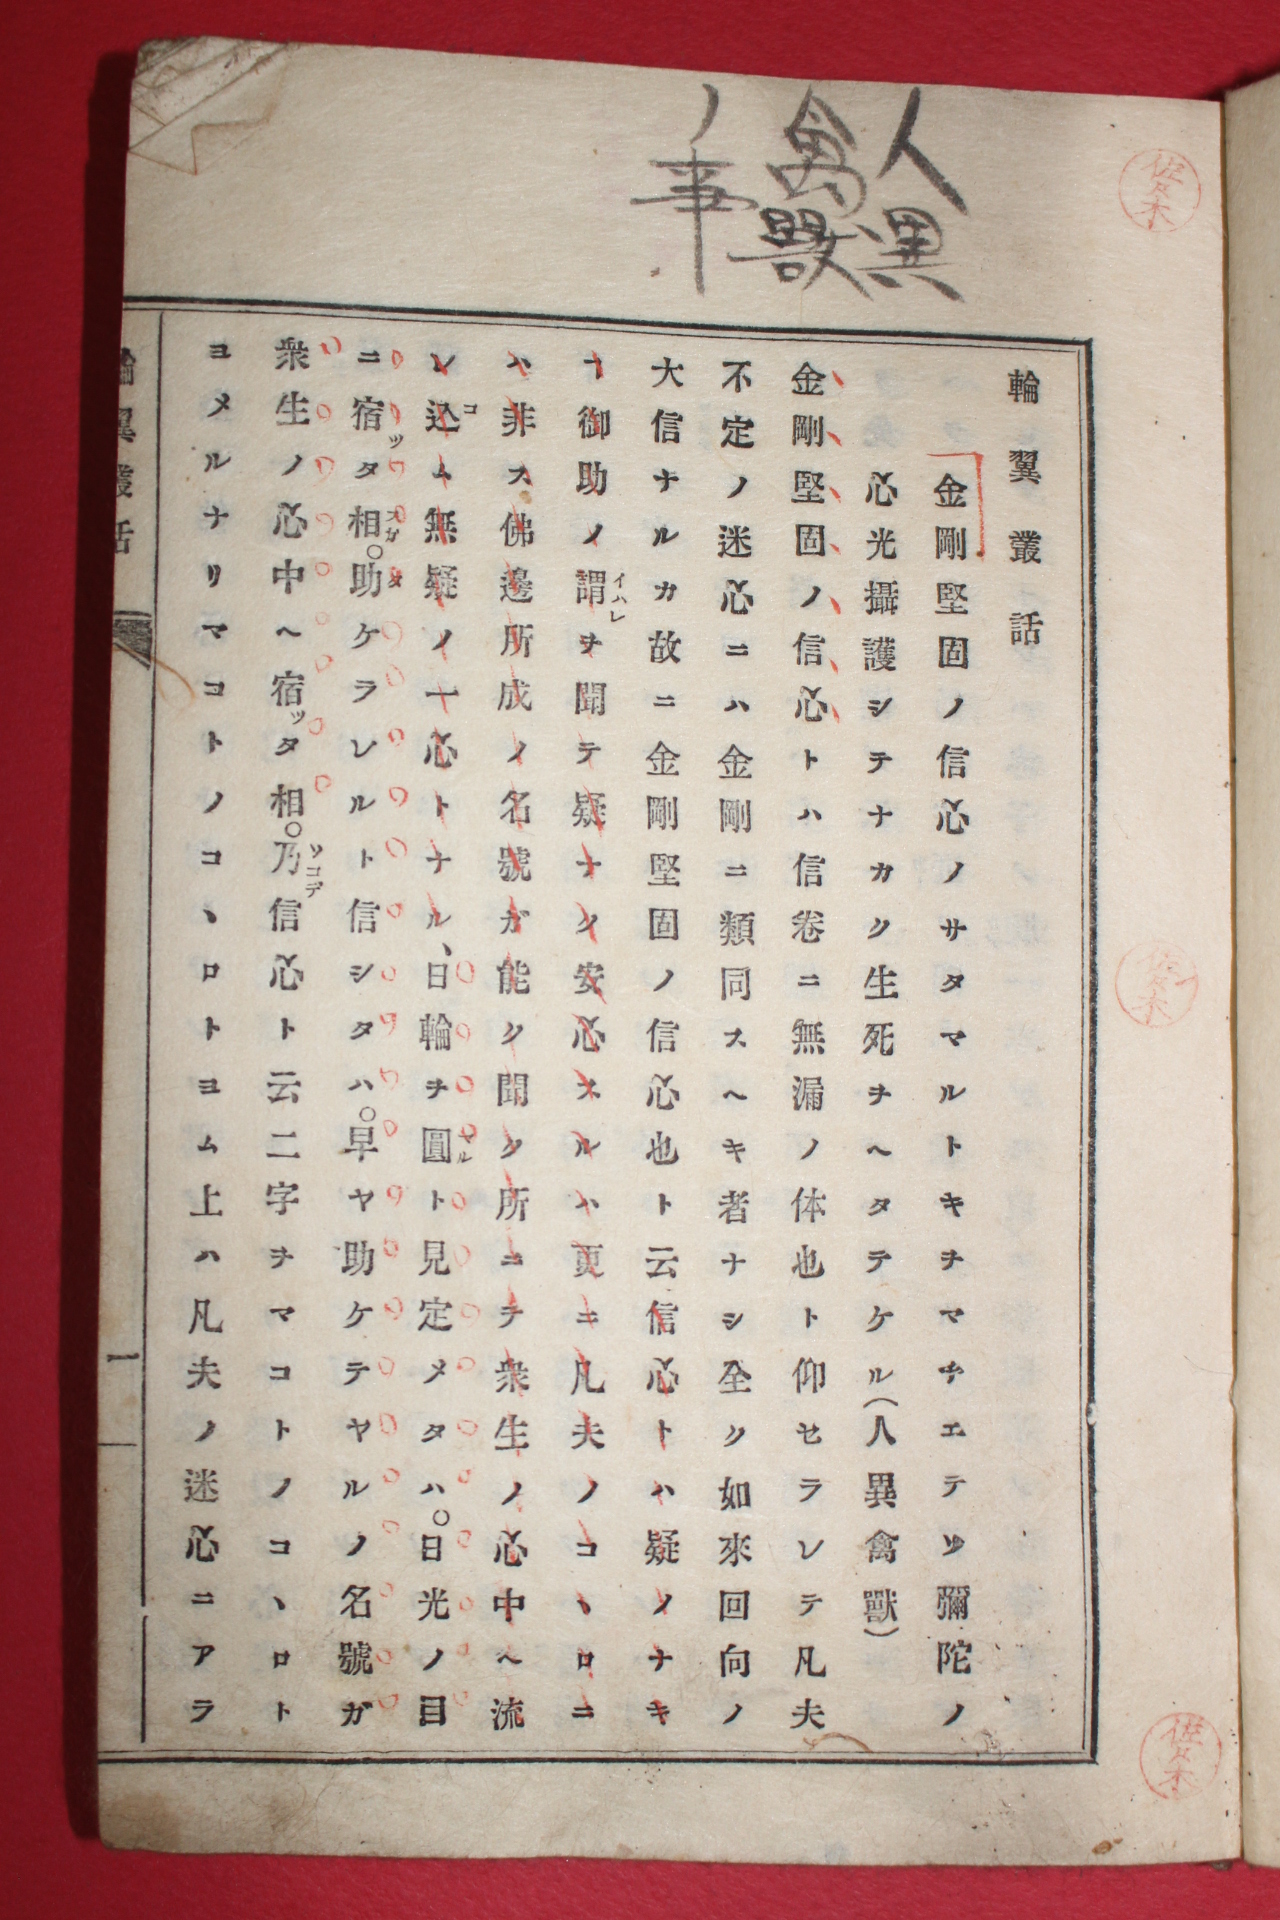 人異
禽獸
ノ事
佐々木
佐々木
佐々木
輪翼叢話
金剛堅固ノ信心ノサタマルトキヲマチエテゾ彌陀ノ
心光攝護シテナカク生死ヲヘタテケル(人異禽獸)
金剛堅固ノ信心トハ信卷ニ無漏ノ体也ト仰セラレテ凡夫
不定ノ迷心ニハ金剛ニ類同スヘキ者ナシ全ク如來回向ノ
大信ナルカ故ニ金剛堅固ノ信心也ト云信心トハ疑ノナキ
ヿ御助ノ謂ヲ聞テ疑ナク安心スルハ更ニ凡夫ノコヽロニ
ハ非ス佛邊所成ノ名號ガ能ク聞ク所ニテ衆生ノ心中ヘ流
レ込ム無疑ノ一心トナル、日輪ヲ圓ト見定メタハ。日光ノ目
ニ宿ッタ相。助ケラレルト信シタハ。早ヤ助ケテヤルノ名號ガ
衆生ノ心中ヘ宿ッタ相。乃信心ト云二字ヲマコトノコヽロト
ヨメルナリマコトノコヽロトヨム上ハ凡夫ノ迷心ニアラ
輪翼叢話
一